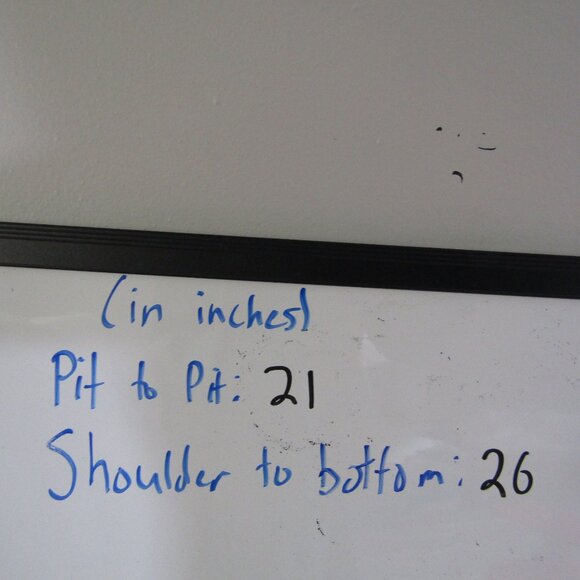 (in inches)
Pit to Pit: 21
Shoulder to bottom: 26